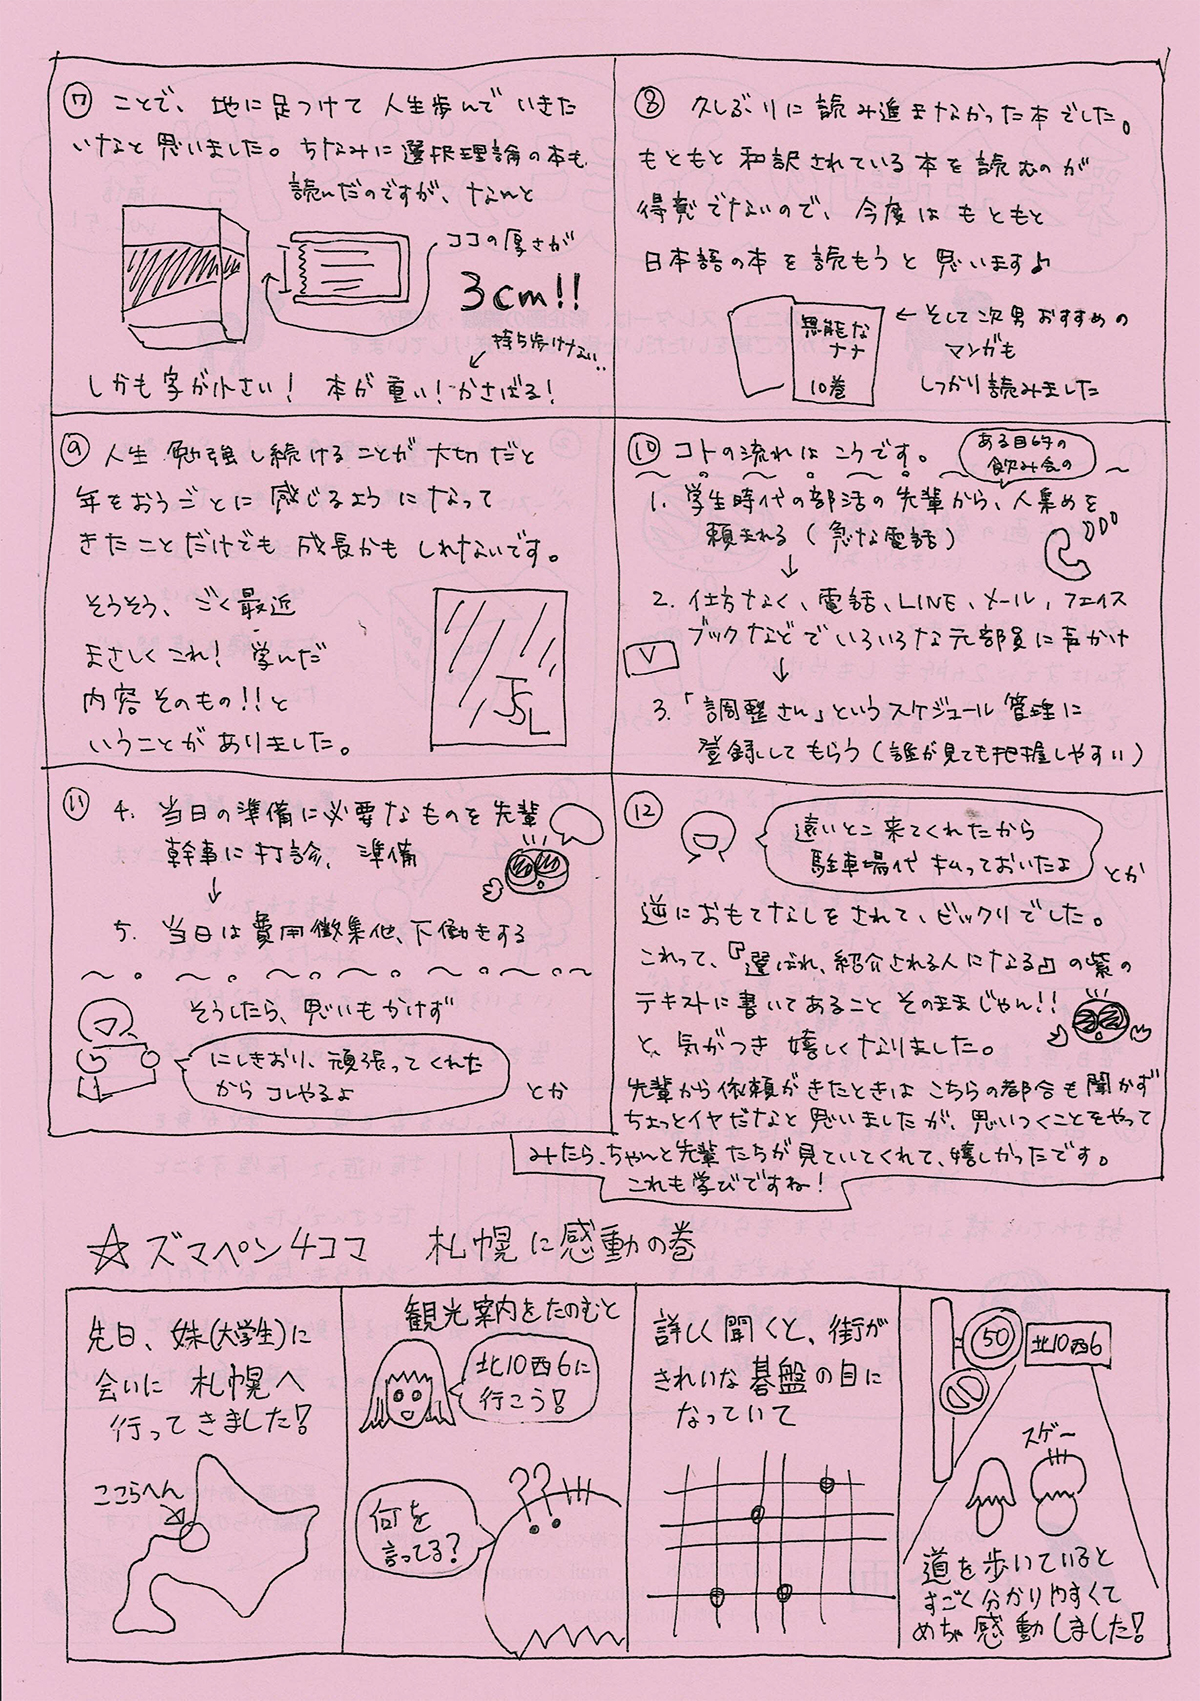 ⑦ ことで、地に足つけて人生歩んでいきた
いなと思いました。ちなみに選択理論の本も
読んだのですが、なんと
ココの厚さが
3cm!!
持ち歩けない..
しかも字が小さい！本が重い！かさばる！
⑧ 久しぶりに読み進まなかった本でした。
もともと和訳されている本を読むのが
得意でないので、今度はもともと
日本語の本を読もうと思います♪
無能な
ナナ
10巻
←そして次男おすすめの
マンガも
しっかり読みました
⑨ 人生勉強し続けることが大切だと
年をおうごとに感じるようになって
きたことだけでも成長かもしれないです。
そうそう、ごく最近
まさしくこれ！学んだ
内容そのもの!!と
いうことがありました。
JSL
⑩ コトの流れはこうです。
ある目的の
飲み会の
1. 学生時代の部活の先輩から、人集めを
頼まれる（急な電話）
↓
2. 仕方なく、電話、LINE、メール、フェイス
ブックなどでいろいろな元部員に声かけ
↓
3.「調整さん」というスケジュール管理に
登録してもらう（誰が見ても把握しやすい）
⑪ 4. 当日の準備に必要なものを先輩
幹事に打診、準備
↓
5. 当日は費用徴集他、下働きをする
そうしたら、思いもかけず
にしきおり、頑張ってくれた
からコレやるよ
とか
⑫
遠いとこ来てくれたから
駐車場代払っておいたよ
とか
逆におもてなしをされて、ビックリでした。
これって、『選ばれ、紹介される人になる』の紫の
テキストに書いてあることそのままじゃん!!
と、気がつき嬉しくなりました。
先輩から依頼がきたときはこちらの都合も聞かず
ちょっとイヤだなと思いましたが、思いつくことをやって
みたら、ちゃんと先輩たちが見ていてくれて、嬉しかったです。
これも学びですね！
☆ズマペン4コマ 札幌に感動の巻
先日、妹(大学生)に
会いに札幌へ
行ってきました！
ここらへん
観光案内をたのむと
北10西6に
行こう！
??
何を
言ってる?
詳しく聞くと、街が
きれいな碁盤の目に
なっていて
50
北10西6
スゲー
道を歩いていると
すごく分かりやすくて
めちゃ感動しました！